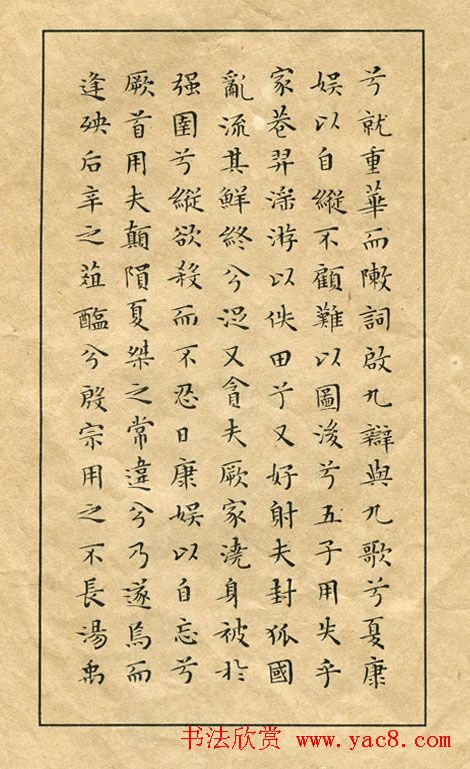 兮就重華而敶詞啟九辯與九歌兮夏康
娱以自縱不顧難以圖後兮五子用失乎
家巷羿淫游以佚田兮又好射夫封狐國
亂流其鮮終兮浞又貪夫厥家澆身被於
强圉兮縱欲殺而不忍日康娱以自忘兮
厥首用夫顛隕夏桀之常違兮乃遂焉而
逢殃后辛之菹醢兮殷宗用之不長湯禹
书法欣赏 www.yac8.com